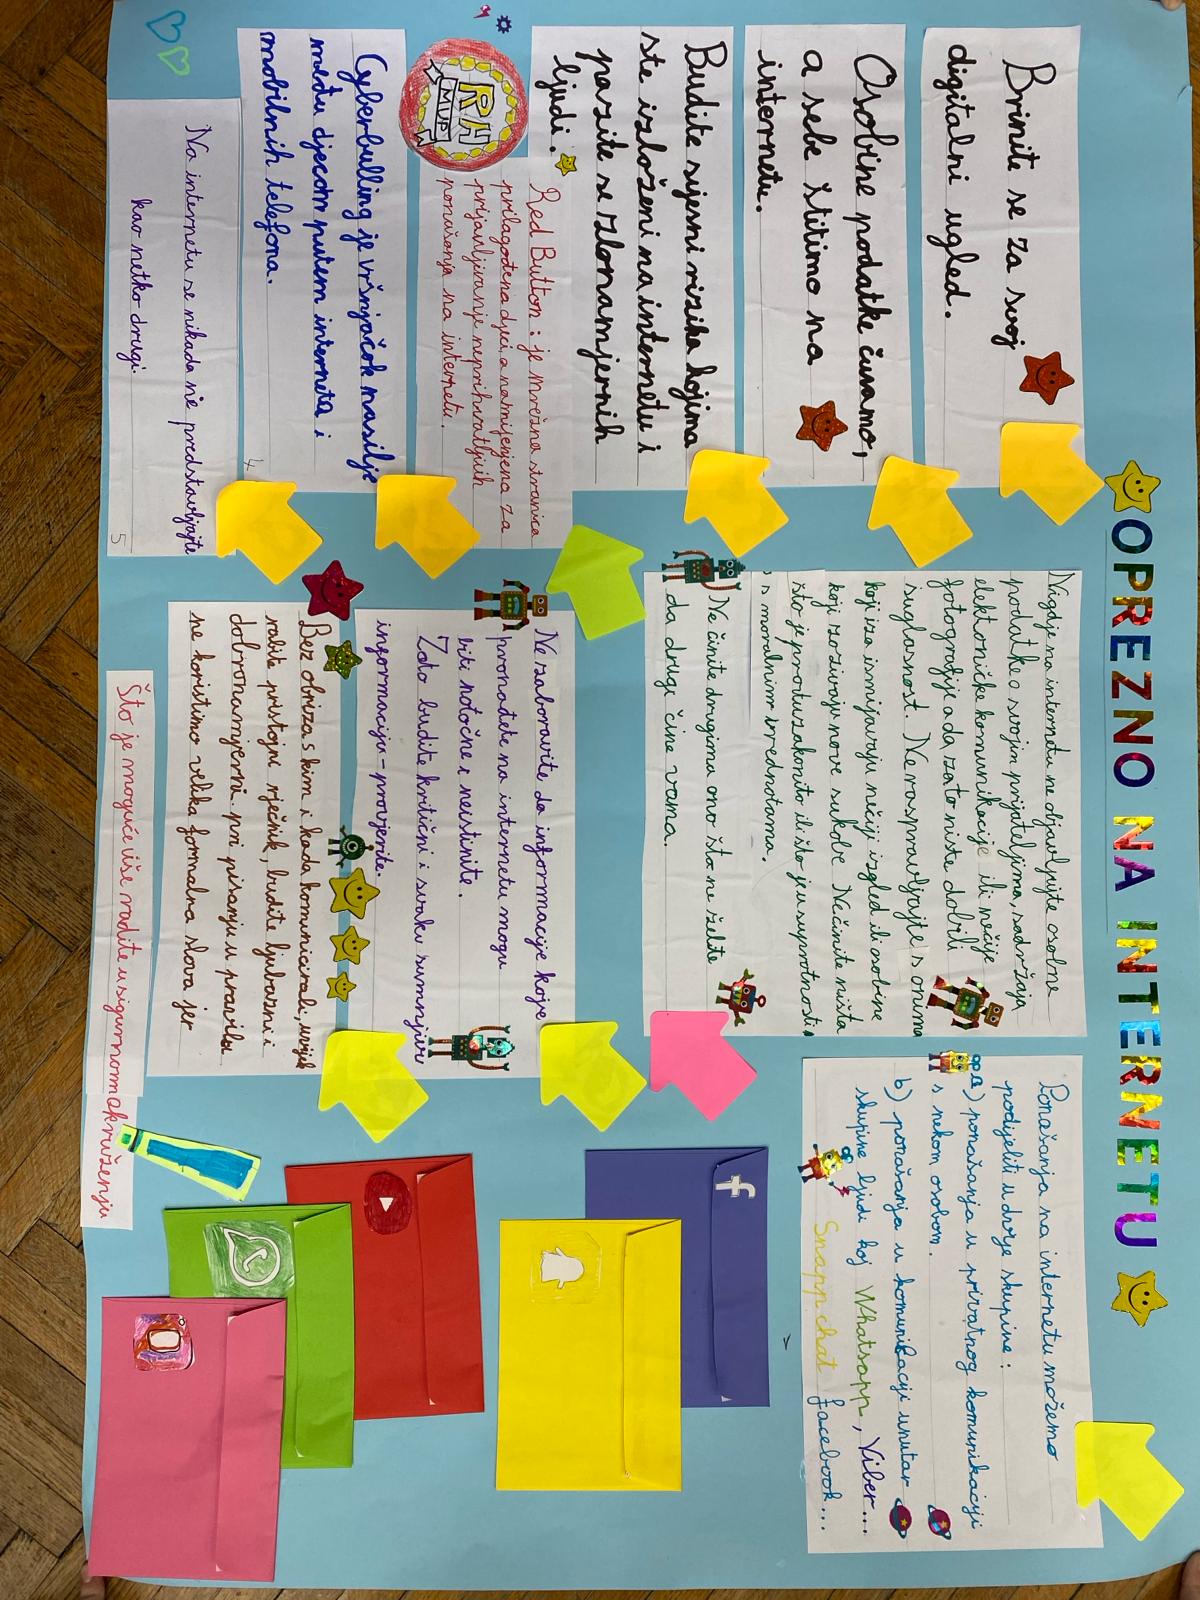 OPREZNO NA INTERNETU
Brinite se za svoj
digitalni ugled.
Osobine podatke čuvamo,
a sebe štitimo na
internetu.
Budite svjesni rizika kojima
ste izloženi na internetu i
pazite se zlonamjernih
ljudi.
RH
MUP
Red Button : je mrežna stranica
prilagođena djeci, a namijenjena za
prijavljivanje neprihvatljivih
ponašanja na internetu.
Cyberbulling je vršnjačok nasilje
među djecom putem interneta i
mobilnih telefona.
4
Na internetu se nikada ne predstavljajte
kao netko drugi.
5
Nigdje na internetu ne objavljujte osobne
podatke o svojim prijateljima, sadržaje
elektoničke komunikacije ili nečije
fotografije a da za to niste dobili
suglasnost. Ne raspravljajte s onima
koji iza ismijavaju nečiji izgled ili osobine
koji izazivaju nove sukobe. Ne činite ništa
što je protuzakonito ili što je u suprotnosti
s moralnim vrednotama.
Ne činite drugima ono što ne želite
da drugi čine vama.
Ne zaboravite da informacije koje
pronađete na internetu mogu
biti netočne i neistinite.
Zato budite kritični i svaku sumnjivu
ingormaciju - provjerite.
Bez obriza s kim i kada komunicirali, uvijek
rabite pristojni rječnik, budite ljubazni i
dobronamjerni. pri pisanju u pravilu
ne koristimo velika formalna slova jer
Što je moguće više radite u sigurnom okruženju
Ponašanja na internetu možemo
podijeliti u dvije skupine :
a) ponašanja u privatnog komunikaciji
s nekom osobom.
b) ponašanja u komunikaciji unutar
skupine ljudi koj Whatsapp, Viber...
Snapp chat facebook...
f